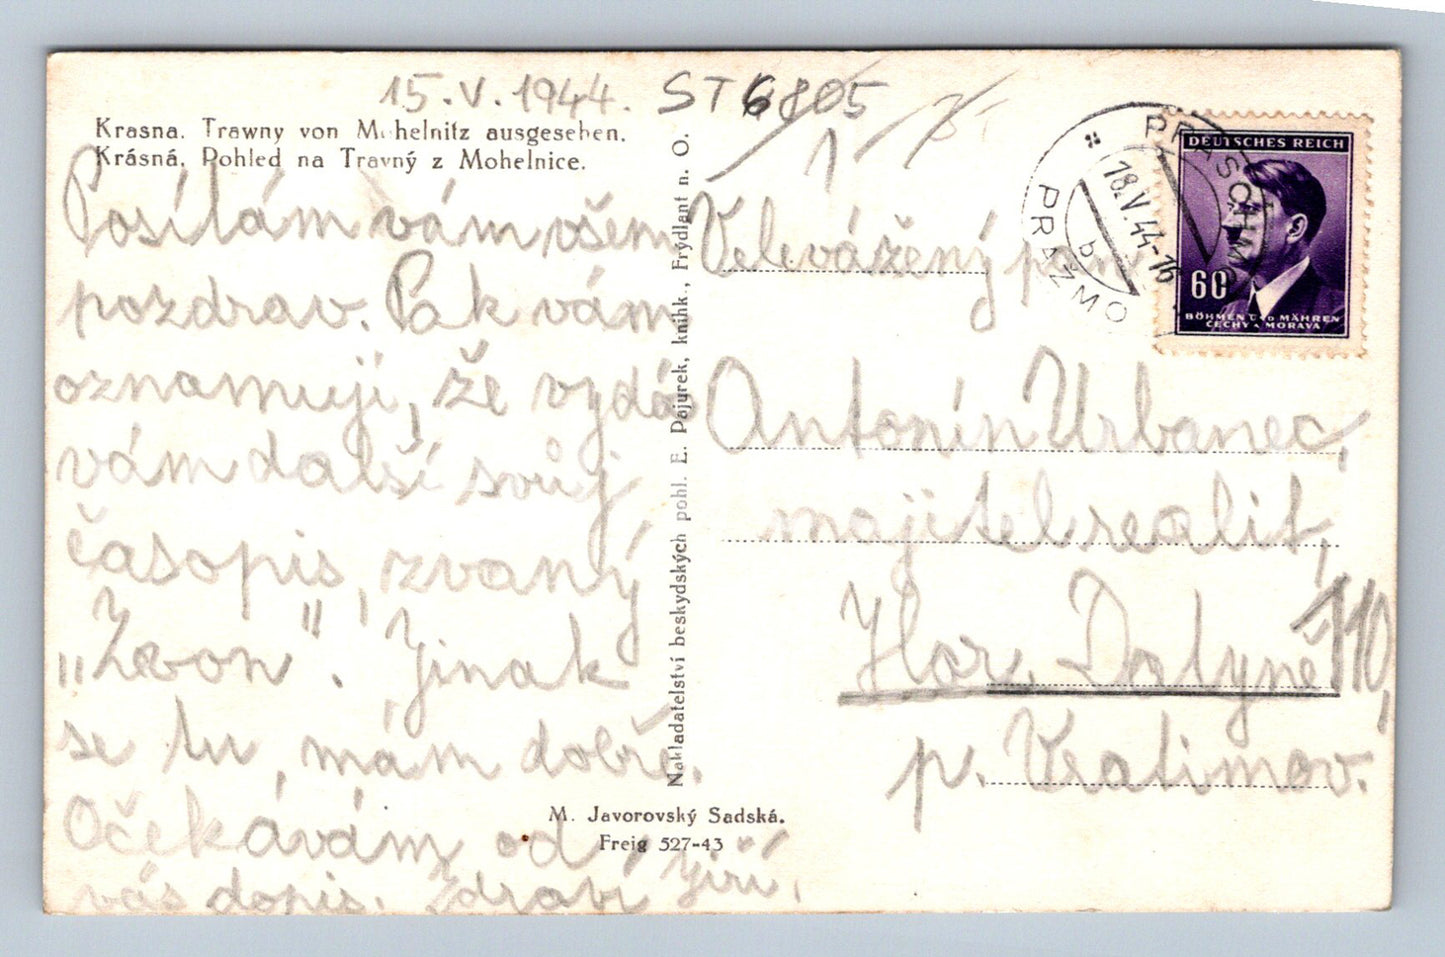 15.V.1944. ST 6805
Krasna. Trawny von Mohelnitz ausgesehen.
Krásná. Pohled na Travný z Mohelnice.
Posílám vám všem
pozdrav. Pak vám
oznamuji, že vydá
vám další svůj
časopis, zvaný
„Zvon". Jinak
se tu, mám dobře.
Očekávám od
vás dopis. Zdraví Jiří.
Nakladatelství beskydských pohl. E. Pajurek, knihk., Frýdlant n. O.
M. Javorovský Sadská.
Freig 527-43
PRASCHMA
PRAŽMO
18.V.44-16
b
DEUTSCHES REICH
60
BÖHMEN UND MÄHREN
ČECHY A MORAVA
Velevážený pan
Antonín Urbanec,
majitel realit,
Hor. Dalyně 110,
p. Vratimov.